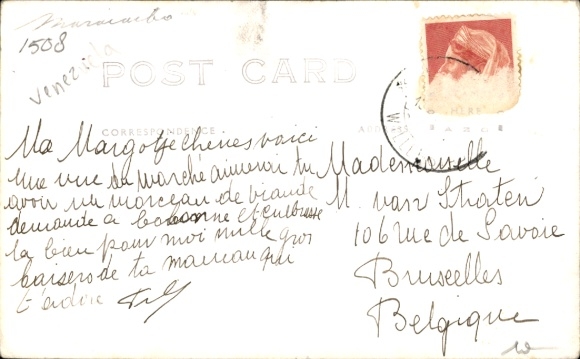 Maracaibo
1508
Venezuela
POST CARD
CORRESPONDENCE
Ma Margotje cherie voici
une vue du marché aimerai tu
avoir un morceau de viande
demande a bobonne et embrasse
la bien pour moi mille gros
baisers de ta maman qui
t'adore
Mademoiselle
M. van Straten
106 rue de Savoie
Bruxelles
Belgique